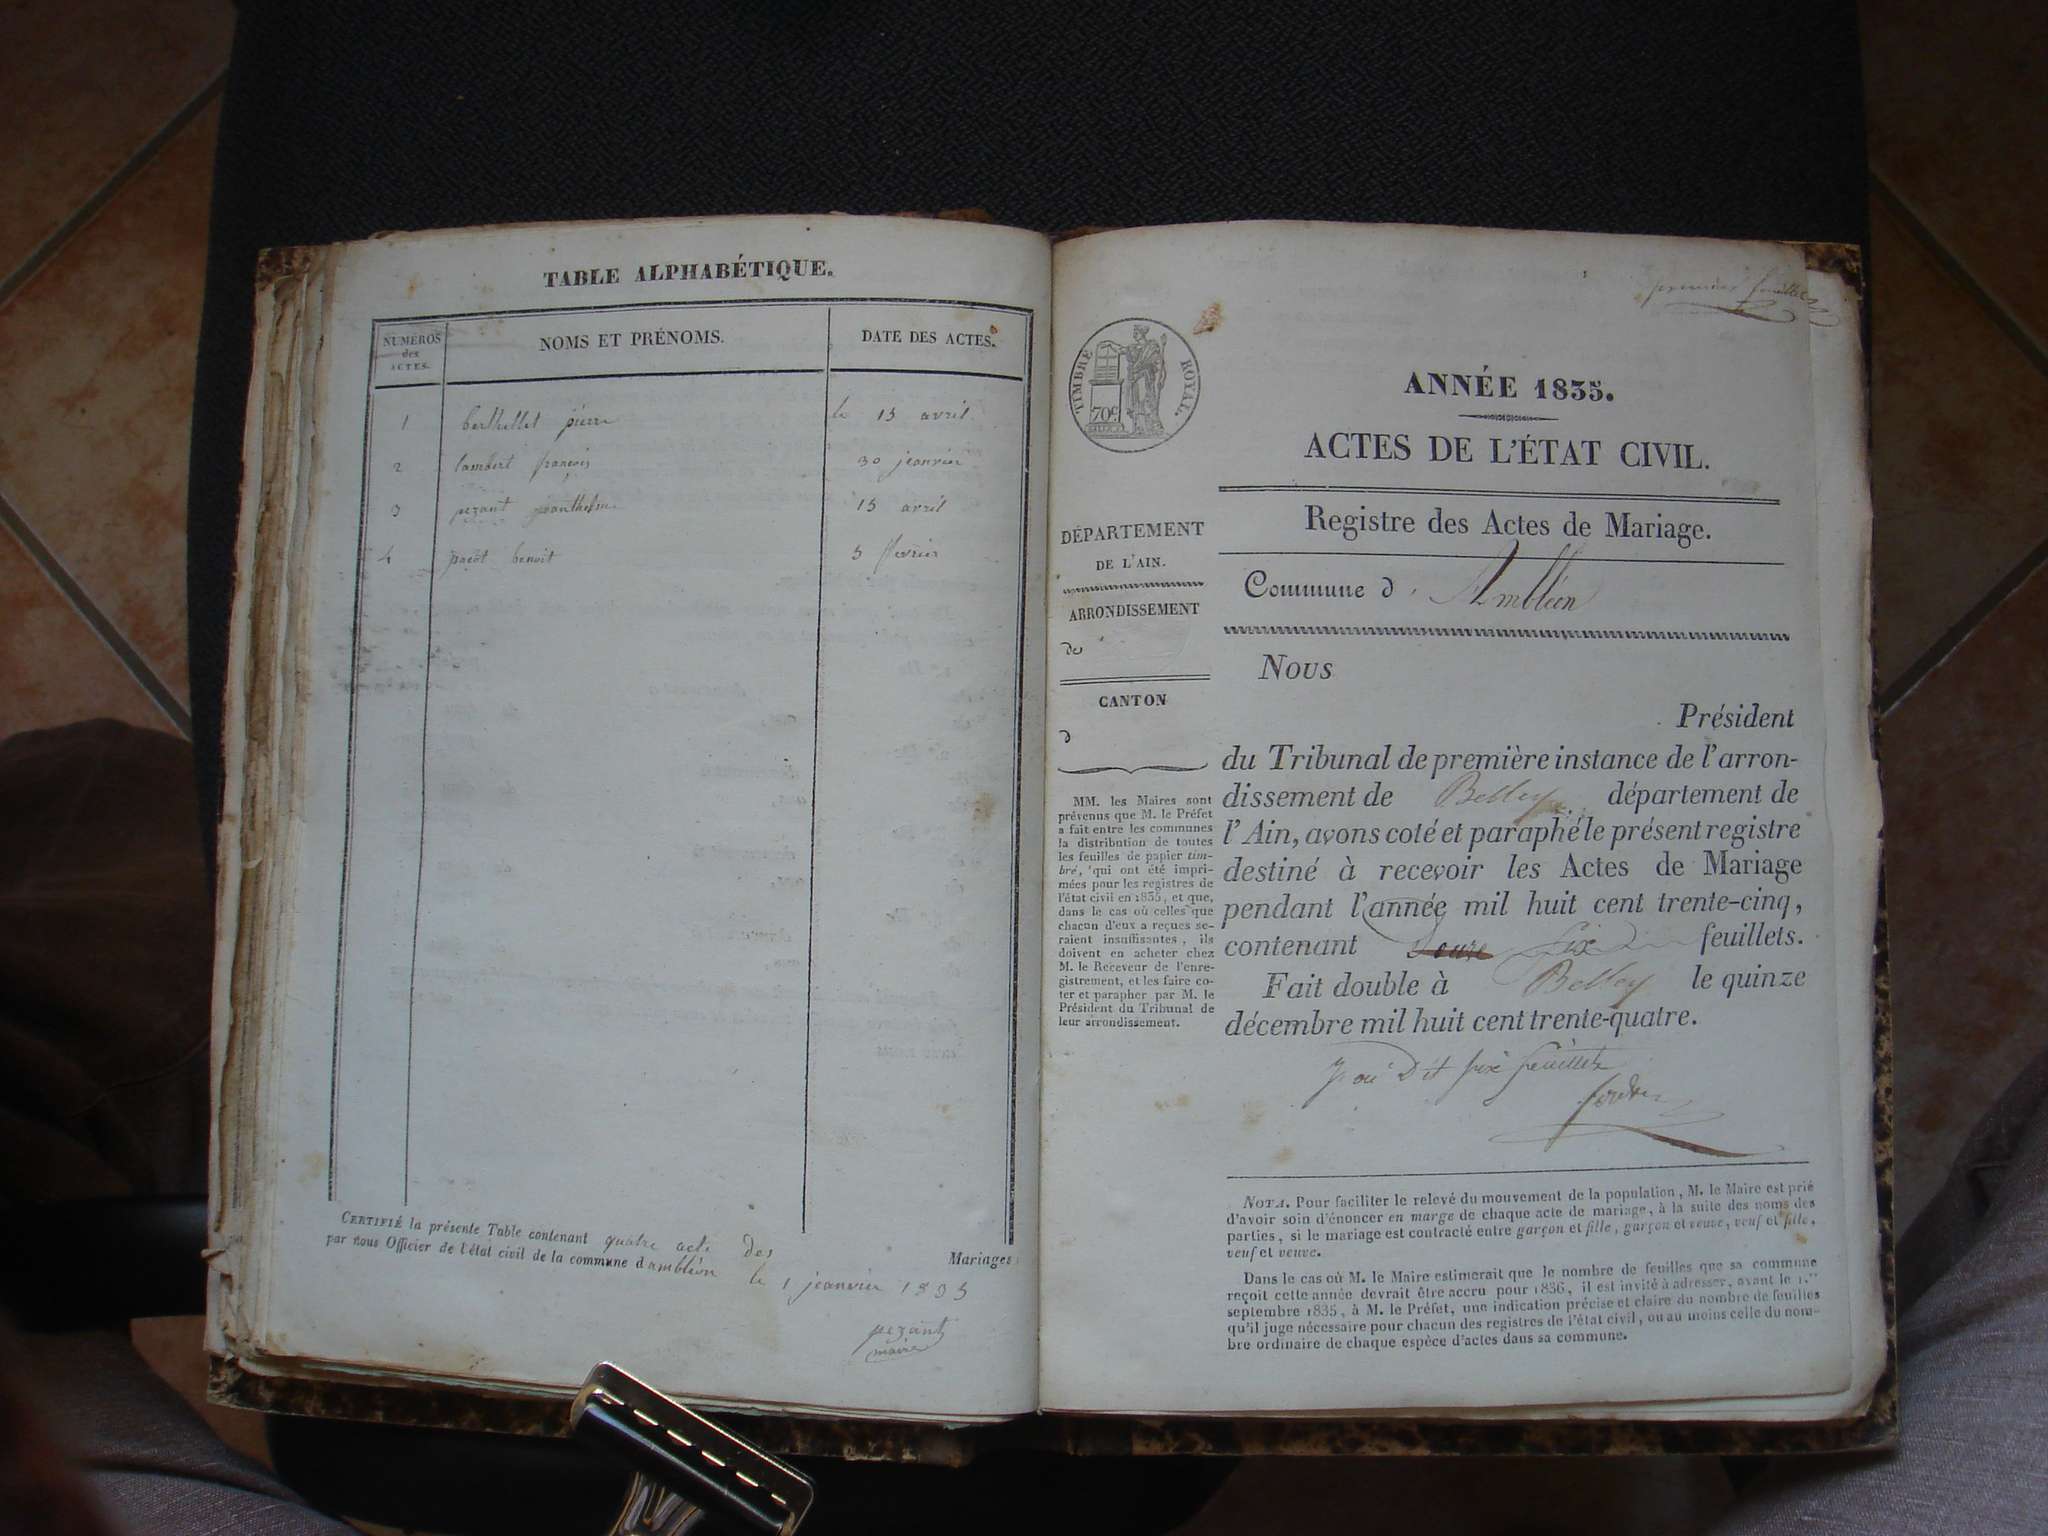 TABLE ALPHABÉTIQUE.
NUMÉROS des ACTES. NOMS ET PRÉNOMS. DATE DES ACTES.
1 berthellet pierre le 15 avril
2 lambert françois 30 janvier
3 pezant janthelme 15 avril
4 pacot benoit 5 fevrier
CERTIFIÉ la présente Table contenant quatre acte des Mariages
par nous Officier de l'état civil de la commune d ambléon le 1 janvier 1835
pezant
maire
premier feuillet
TIMBRE ROYAL.
70c
ANNÉE 1835.
ACTES DE L'ÉTAT CIVIL.
Registre des Actes de Mariage.
Commune d' Ambléon
DÉPARTEMENT
DE L'AIN.
ARRONDISSEMENT
de
CANTON
d
MM. les Maires sont
prévenus que M. le Préfet
a fait entre les communes
la distribution de toutes
les feuilles de papier tim-
bré, qui ont été impri-
mées pour les registres de
l'état civil en 1835, et que,
dans le cas où celles que
chacun d'eux a reçues se-
raient insuffisantes, ils
doivent en acheter chez
M. le Receveur de l'enre-
gistrement, et les faire co-
ter et parapher par M. le
Président du Tribunal de
leur arrondissement.
Nous
Président
du Tribunal de première instance de l'arron-
dissement de Belley département de
l'Ain, avons coté et paraphé le présent registre
destiné à recevoir les Actes de Mariage
pendant l'année mil huit cent trente-cinq,
contenant six feuillets.
Fait double à Belley le quinze
décembre mil huit cent trente-quatre.
Dit six feuillets
NOTA. Pour faciliter le relevé du mouvement de la population, M. le Maire est prié
d'avoir soin d'énoncer en marge de chaque acte de mariage, à la suite des noms des
parties, si le mariage est contracté entre garçon et fille, garçon et veuve, veuf et fille,
veuf et veuve.
Dans le cas où M. le Maire estimerait que le nombre de feuilles que sa commune
reçoit cette année devrait être accru pour 1836, il est invité à adresser, avant le 1.er
septembre 1835, à M. le Préfet, une indication précise et claire du nombre de feuilles
qu'il juge nécessaire pour chacun des registres de l'état civil, ou au moins celle du nom-
bre ordinaire de chaque espèce d'actes dans sa commune.